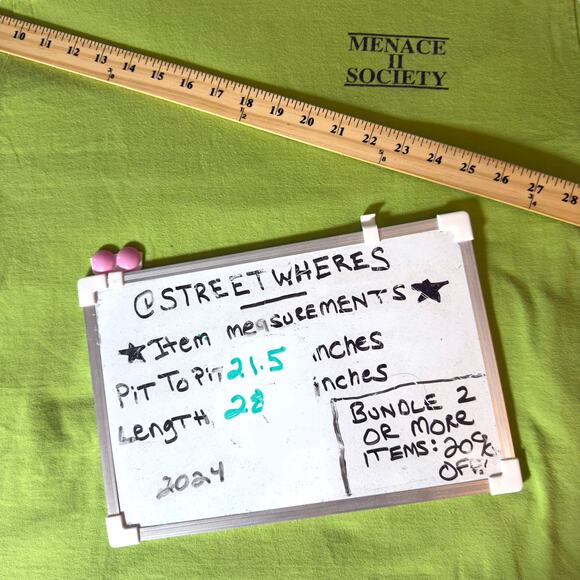 MENACE
II
SOCIETY
10 11 12 13 14 15 16 17 18 19 20 21 22 23 24 25 26 27 28
3/8 1/2 5/8 3/4
@STREETWHERES
★Item measurements★
PiT To PiT 21.5 inches
Length 28 inches
2024
BUNDLE 2
OR MORE
ITEMS: 20%
OFF!